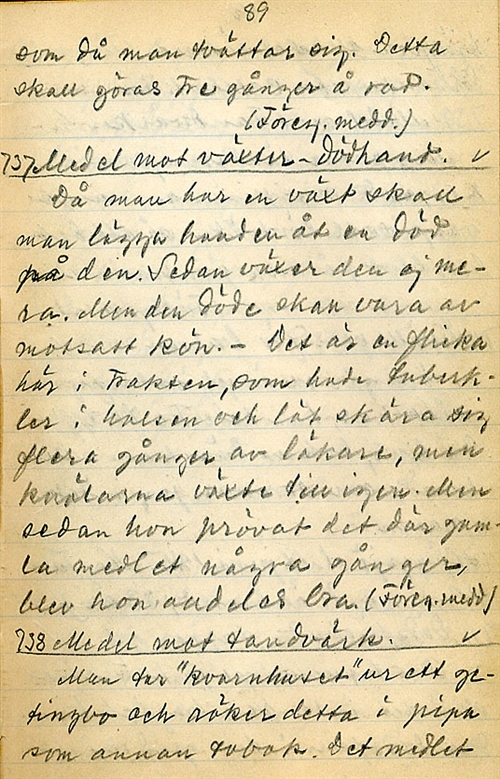 89
som då man tvättar sig. Detta
skall göras tre gånger å rad.
(Föreg. medd.)
737 Medel mot växter - dödhand. ✓
Då man har en växt skall
man lägga handen åt en död
på den. Sedan växer den ej me-
ra. Men den döde skall vara av
motsatt kön. - Det är en flicka
här i trakten, som hade tuberk-
ler i halsen och lät skära sig
flera gånger av läkare, men
knölarna växte till igen. Men
sedan hon prövat det där gam-
la medlet några gånger,
blev hon alldeles bra. (Föreg. medd)
738 Medel mot tandvärk. ✓
Man tar "kvarnhuset" ur ett ge-
tingbo och röker detta i pipa
som annan tobak. Det medlet